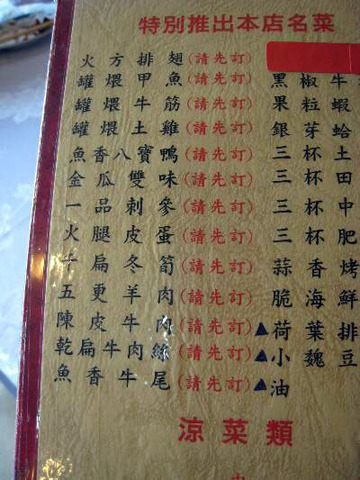 特別推出本店名菜
火方排翅(請先訂)
罐煨甲魚(請先訂) 黑椒牛
罐煨牛筋(請先訂) 果粒蝦
罐煨土雞(請先訂) 銀芽蛤
魚香八寶鴨(請先訂) 三杯土
金瓜雙味(請先訂) 三杯田
一品刺參(請先訂) 三杯中
火腿皮蛋(請先訂) 三杯肥
干扁冬筍(請先訂) 蒜香烤
五更羊肉(請先訂) 脆海鮮
陳皮牛肉(請先訂) ▲荷葉排
乾扁牛肉絲(請先訂) ▲小魏豆
魚香牛尾(請先訂) ▲油
涼菜類